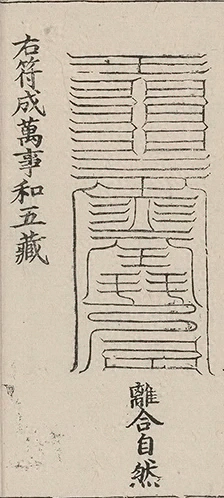 離合自然
右符成萬事和五藏